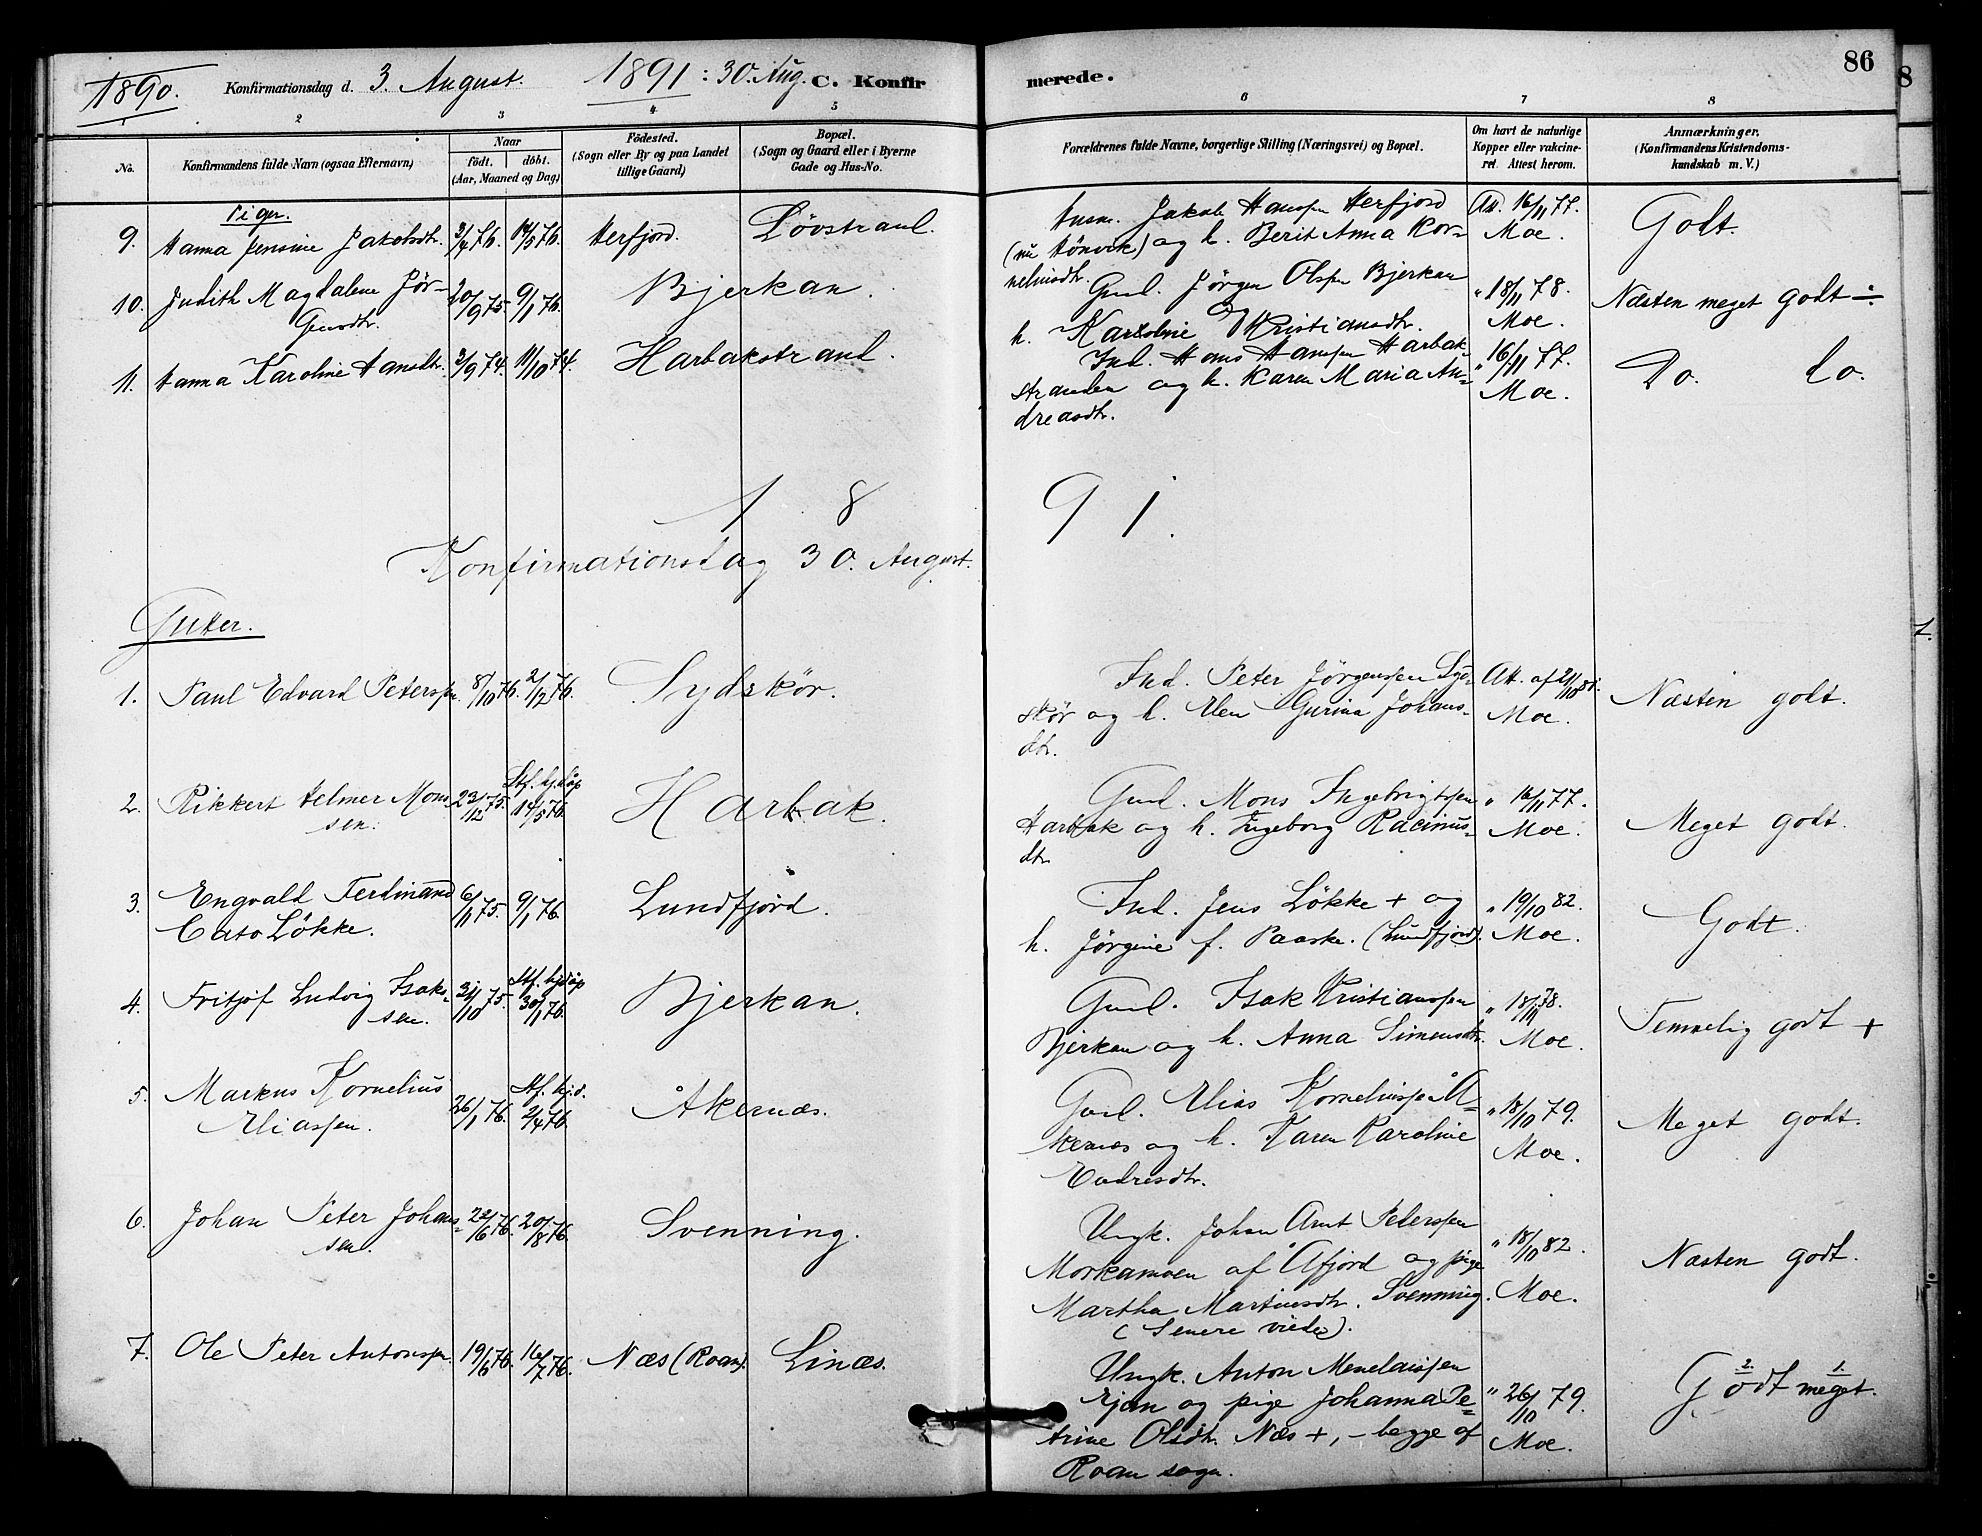 1890. Konfirmationsdag d. 3 August. 1891: 30. Aug. C. Konfirmerede. 86
1 2 3 4 5 6 7 8
No.
Konfirmandens fulde Navn (ogsaa Efternavn)
Naar
født. døbt.
(Aar, Maaned og Dag)
Fødested.
(Sogn eller By og paa Landet
tillige Gaard)
Bopæl.
(Sogn og Gaard eller i Byerne
Gade og Hus-No.
Forældrenes fulde Navne, borgerlige Stilling (Næringsvei) og Bopæl.
Om havt de naturlige
Kopper eller vakcine-
ret. Attest herom.
Anmærkninger.
(Konfirmandens Kristendoms-
kundskab m. V.)
Piger.
9. Hanna Jensine Jakobsdtr. 3/4 76. 14/5 76. Herfjord. Løvstrand.
Husm. Jakob Hanssen Herfjord
(nu Hønvik) og h. Berit Anna Kor-
nelinsdtr.
At. 16/11 77.
Moe.
Godt.
10. Judith Magdalene Jør-
gensdtr. 20/9 75. 9/1 76. Bjerkan.
Gmd. Jørgen Olsen Bjerkan
og
h. Karoline Kristiansdtr.
" 18/11 78.
Moe.
Næsten meget godt ÷
11. Hanna Karoline Hansdtr. 3/9 74. 11/10 74. Harbakstrand.
Ind. Hans Hanssen Harbak-
stranden og h. Karen Maria An-
dreasdtr.
" 16/11 77.
Moe.
Do. Do.
18 91.
Konfirmationsdag 30. August.
Gutter.
1. Paul Edvard Peterssen 8/10 76. 2/12 76. Sydskør.
Ind. Peter Jørgenssen Syd-
skør og h. Elen Gurina Johans-
dtr.
At. af 21/10 85.
Moe.
Næsten godt.
2. Rikkert Helmer Mons-
sen. 23/12 75. Stf. hjdøp
14/5 76. Harbak.
Gmd. Mons Ingebrigtssen
Harbak og h. Ingeborg Racinus-
dtr.
" 16/11 77.
Moe.
Meget godt.
3. Engvald Ferdinand
Cato Løkke. 6/11 75. 9/1 76. Lundfjord.
Ind. Jens Løkke + og
h. Jørgine f. Paaske. (Lundfjord).
" 19/10 82.
Moe.
Godt.
4. Fritjof Ludvig Isaks-
sen. 31/10 75. Stf. hjdøp
30/1 76. Bjerkan.
Gmd. Isak Kristianssen
Bjerkan og h. Anna Simensdtr.
" 18/11 78.
Moe.
Temmelig godt +
5. Markus Kornelius
Eliassen. 26/1 76. Stf. hj.d.
2/4 76. Åkernæs.
Gmd. Elias Kornelinssen Å-
kernæs og h. Karen Karoline
Endresdtr.
" 18/10 79.
Moe.
Meget godt.
6. Johan Peter Johans-
sen. 22/6 76. 20/8 76. Svenning.
Ungk. Johan Arnt Peterssen
Morkamoen af Åfjord og pige
Martha Martinsdtr. Svenning.
(Senere viede).
" 18/10 82.
Moe.
Næsten godt.
7. Ole Peter Antonssen. 19/6 76. 16/7 76. Næs (Roan). Linæs.
Ungk. Anton Menelaissen
Ejan og pige Johanna Pe-
trine Olsdtr. Næs +, - begge af
Roan sogn.
" 26/10 79.
Moe.
2. 1.
Godt meget.